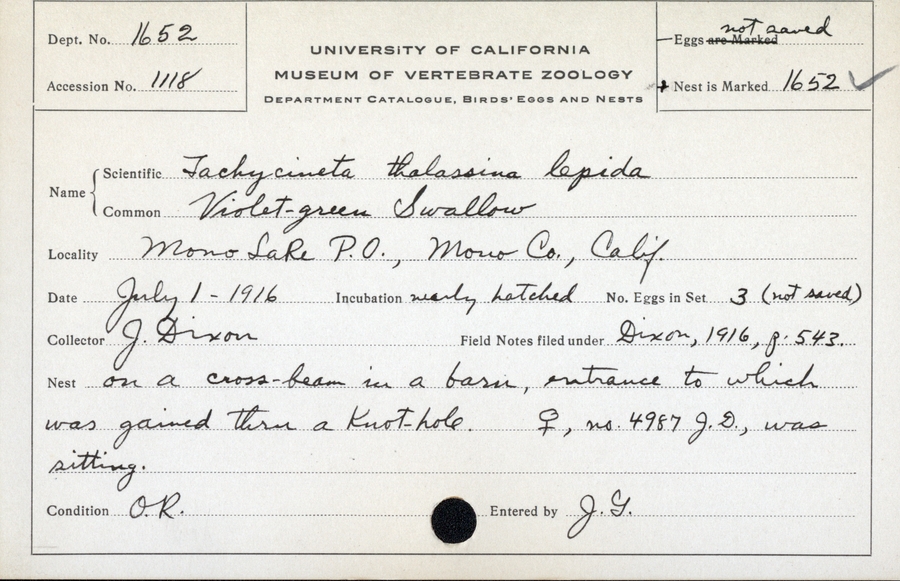 Dept. No. 1652
Accession No. 1118
UNIVERSITY OF CALIFORNIA
MUSEUM OF VERTEBRATE ZOOLOGY
DEPARTMENT CATALOGUE, BIRDS' EGGS AND NESTS
not saved
Eggs are Marked
Nest is Marked 1652
Name
Scientific Tachycineta thalassina lepida
Common Violet-green Swallow
Locality Mono Lake P.O., Mono Co., Calif.
Date July 1 - 1916 Incubation nearly hatched No. Eggs in Set 3 (not saved)
Collector J. Dixon Field Notes filed under Dixon, 1916, p. 543.
Nest on a cross-beam in a barn, entrance to which
was gained thru a Knot-hole. ♀, no. 4987 J.D., was
sitting.
Condition O.R. Entered by J.G.